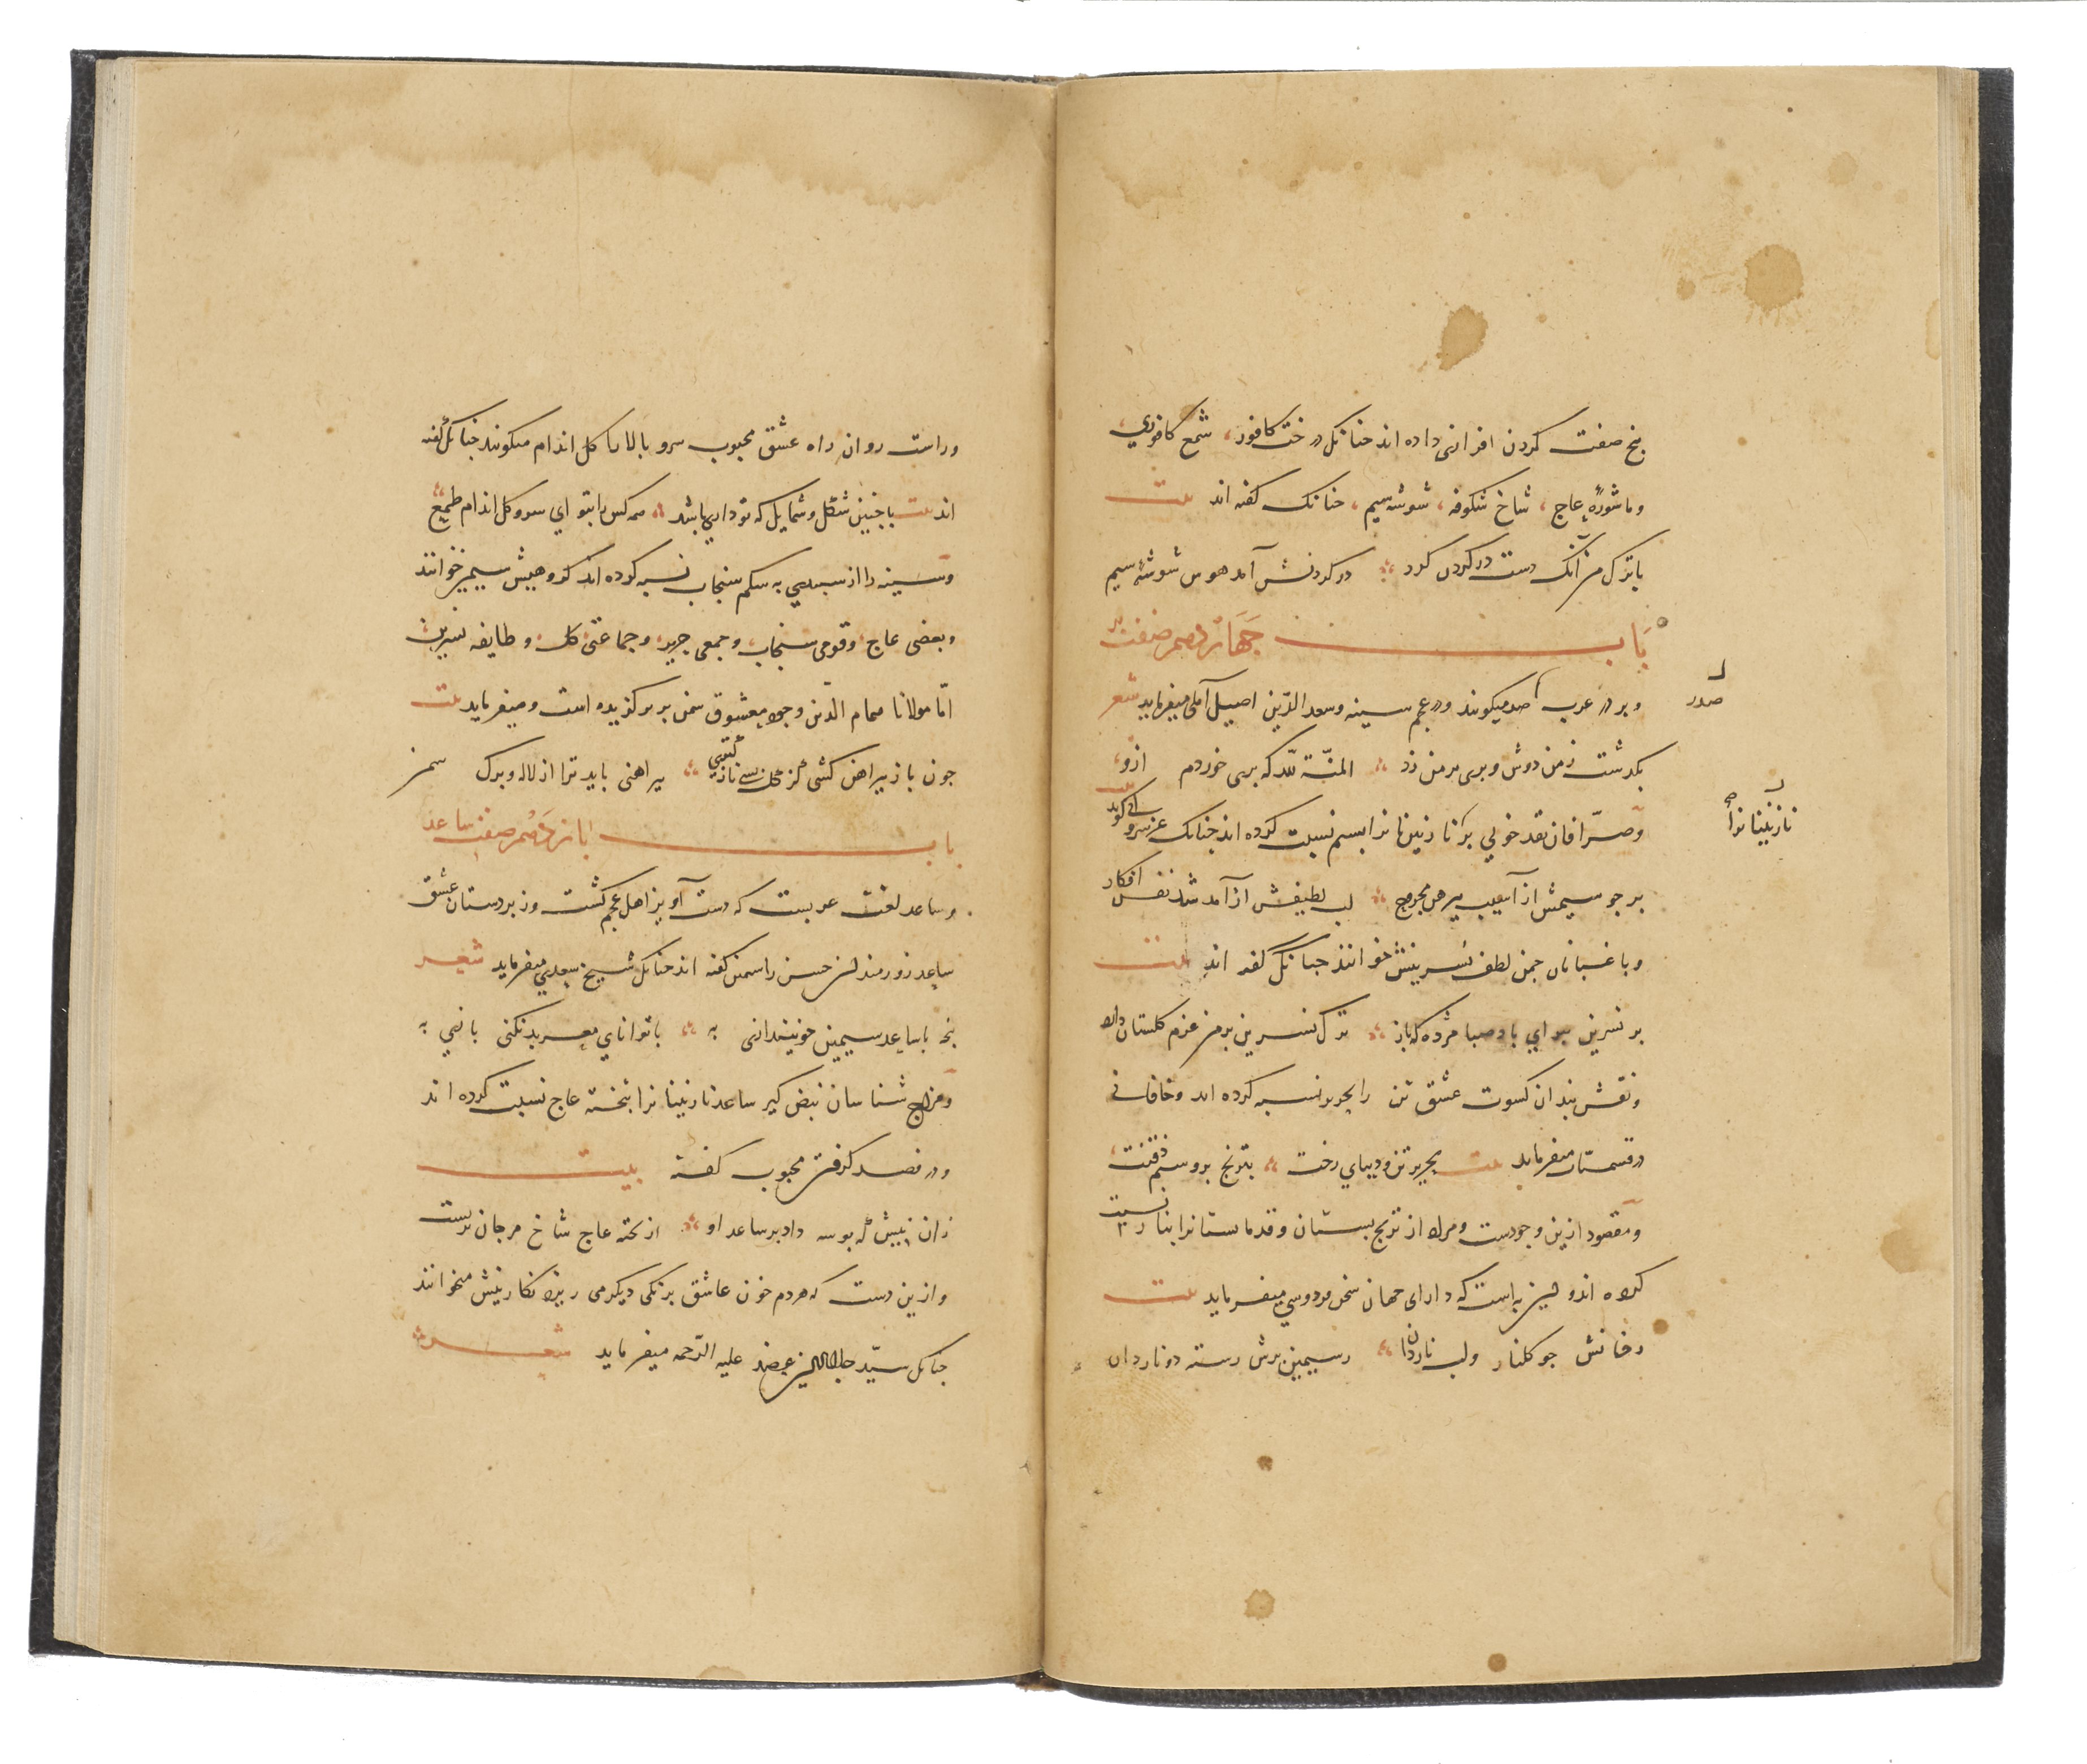 پنج صفت کردن افزانی داده اند جنانکل درخت کافور، شمع کافوری،
وماشورهٔ عاج، شاخ شکوفه، شوشه سیم، جنانک کفته اند بیت
باترک من آنک دست در کردن کرد در کردنش آمد هوس شوشهٔ سیم
باب جهاردهم در صفت بر
و بر در عرب صدر میکویند و در عجم سینه و سعد الدین اصیل آملی میفرماید شعر
بکذشت ز من دوش و بری بر من زد المنّة للّه که بری خوردم ازو
صدر
و صرّافان نقد خوبی بر نازنینانرا بسیم نسبت کرده اند جنانک میکوید
نازنینانرا صح
بر جو سیمش از آسیب پیرهن مجروح لب لطیفش از آمد شد نفس افکار
و باغبانان جمن لطف نسرینش خوانند جنانک کفته اند بیت
بر نسرین ببر ای باد صبا مژده که باز ترک نسرین بر من عزم کلستان دارد
و نقش بندان کسوت عشق تن را بحریر نسبت کرده اند و خاقانی
در قسمتان میفرماید بیت بحریر تن و دیبای رخت بترنج بر و سیم ذقنت
و مقصود ازین وجودست و مراد از ترنج بستان و قدما بستانرا بنار نسبت
کرده اند و نیز به است که دارای جهان سخن فردوسی میفرماید بیت
رخانش جو کلنار و لب ناردان ز سیمین برش رسته دو ناردان
و راست روان راه عشق محبوب سرو بالا را کل اندام میکویند جنانکه کفته
اند بیت با جنین شکل و شمایل که تو داری باشد همه کس را بتو ای سرو کل اندام طمع
و سینه را از سبیدی به شکم سنجاب نسبت کرده اند کروهیش سیم خوانند
و بعضی عاج و قومی سنجاب و جمعی حریر و جماعتی کل و طایفه نسرین
امّا مولانا همام الدّین وجود معشوق سمن بر برکزیده است و میفرماید بیت
جون باز پیراهن کشی کز کل بسی نازکتری پیراهنی باید ترا از لاله و برک سمن
باب بانزدهم در صفت ساعد
و ساعد لغت عربست که دست آویز اهل عجم کشت و زبردستان عشق
ساعد زورمندان حسن را سمین کفته اند جنانکل شیخ سعدی میفرماید شعر
پنجه با ساعد سیمین جو نیندازی به با توانای معربد نکنی بازی به
و مزاج شناسان نبض کیر ساعد نازنینانرا بتخته عاج نسبت کرده اند
و در فصد کرفتن محبوب کفته بیت
زان نیش که بوسه داد بر ساعد او از تخته عاج شاخ مرجان برست
و ازین دست که هردم خون عاشق برنکی دیکر می ریزد نکارینش میخوانند
جنانکل سیّد جلال الدین عضد علیه الرّحمه میفرماید شعر